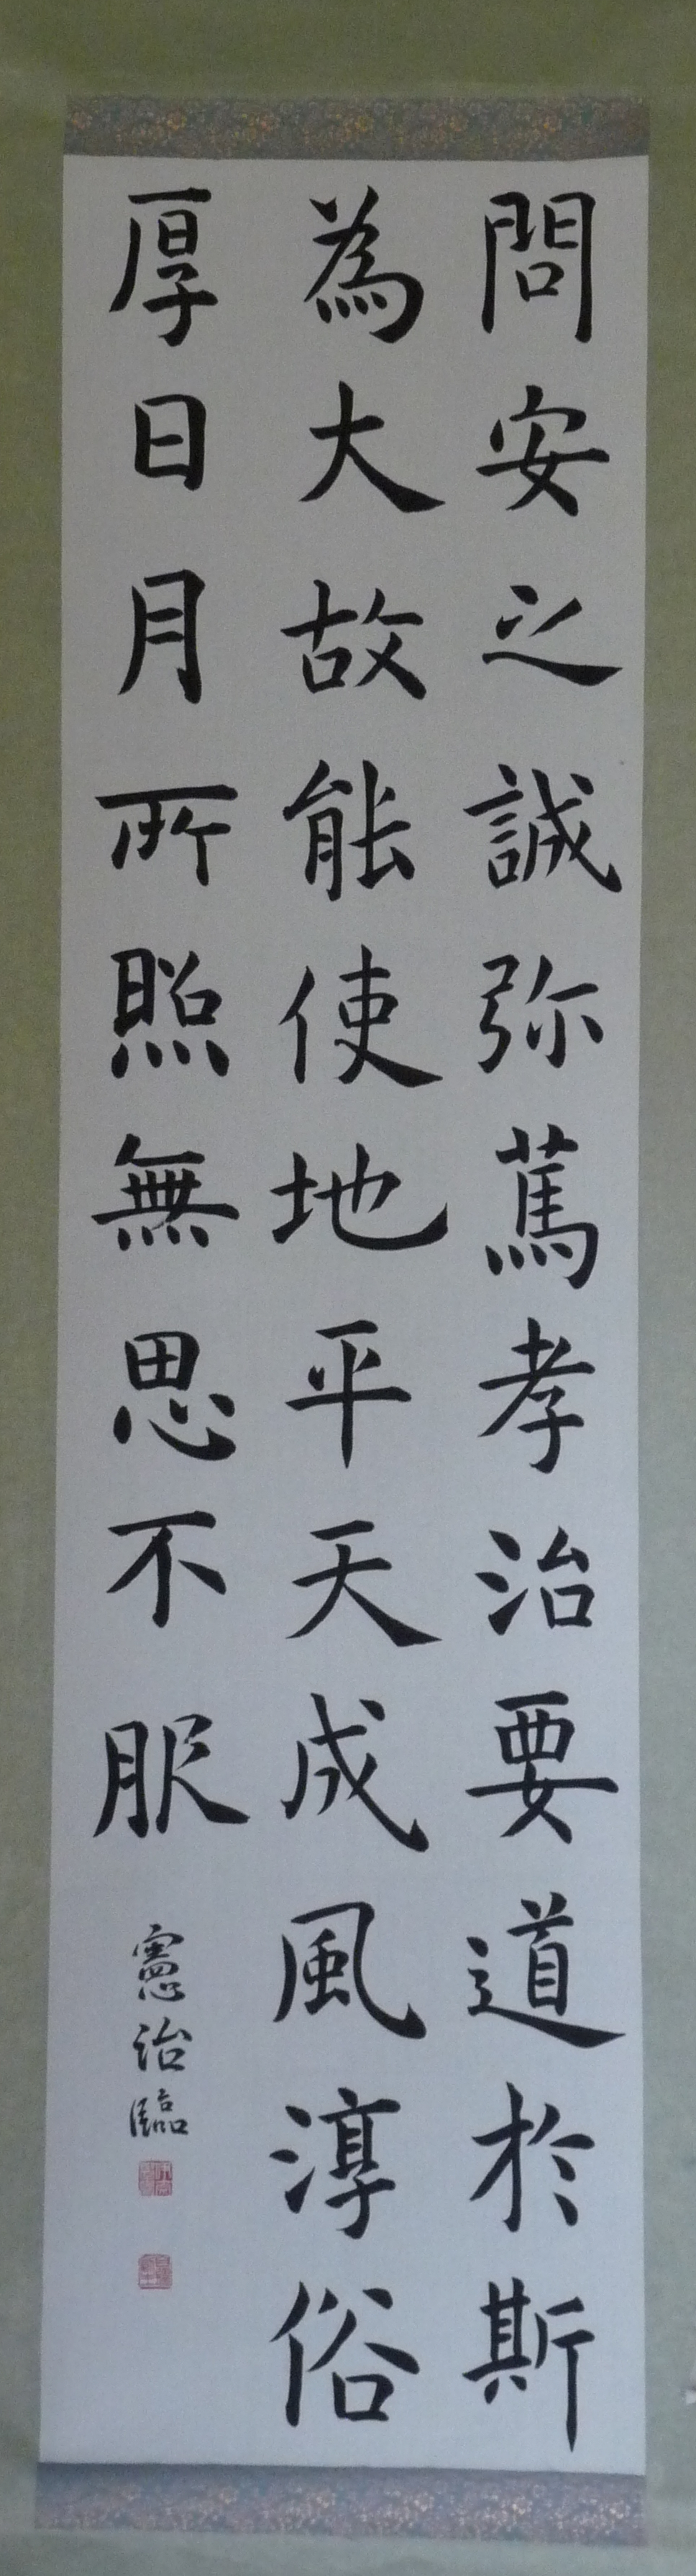 問安之誠弥篤孝治要道於斯
為大故能使地平天成風淳俗
厚日月所照無思不服
憲治臨